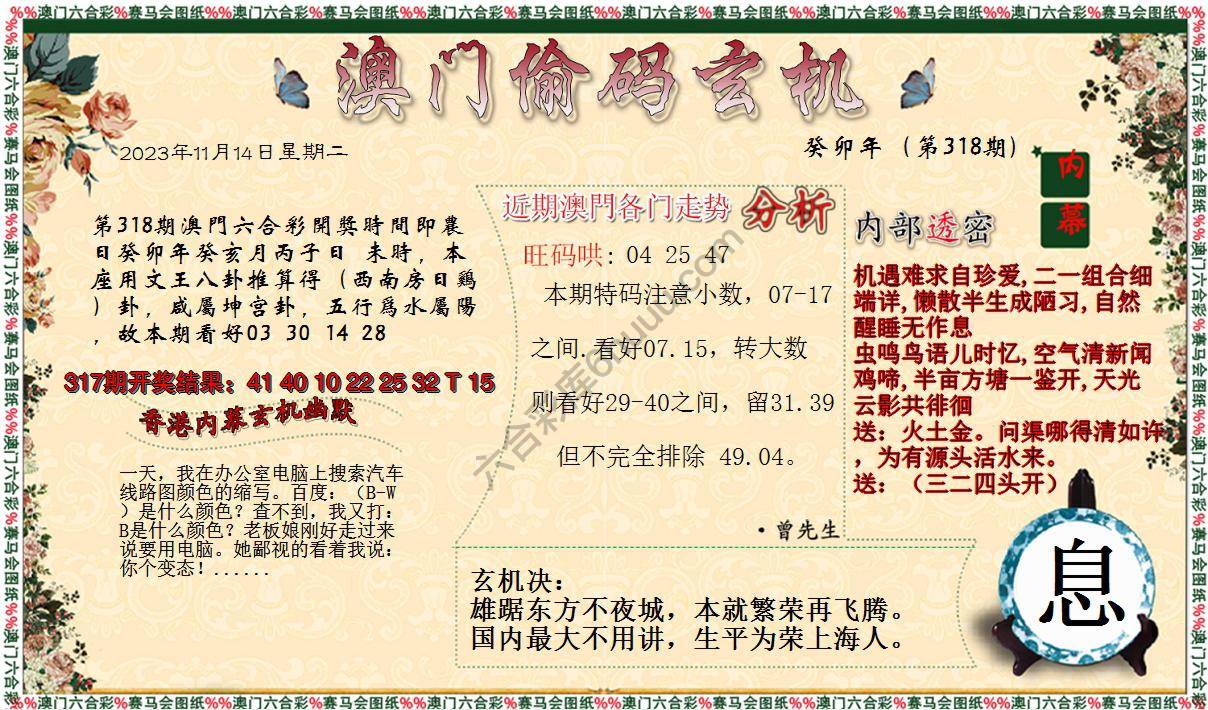 %%澳门六合彩%赛马会图纸%%澳门六合彩%赛马会图纸%%澳门六合彩%赛马会图纸%%澳门六合彩%赛马会图纸%%澳门六合彩%赛马会图纸%%澳门六合彩%赛马会图纸%%
澳门偷码玄机
2023年11月14日星期二
癸卯年（第318期）
内
幕
第318期澳門六合彩開獎時間即農
日癸卯年癸亥月丙子日 未時，本
座用文王八卦推算得（西南房日鷄
）卦，咸屬坤宫卦，五行爲水屬陽
，故本期看好03 30 14 28
317期开奖结果：41 40 10 22 25 32 T 15
香港内幕玄机幽默
一天，我在办公室电脑上搜索汽车
线路图颜色的缩写。百度：（B-W
）是什么颜色？查不到，我又打：
B是什么颜色？老板娘刚好走过来
说要用电脑。她鄙视的看着我说：
你个变态！......
近期澳門各门走势 分析
旺码哄: 04 25 47
本期特码注意小数，07-17
之间.看好07.15，转大数
则看好29-40之间，留31.39
但不完全排除 49.04。
·曾先生
内部透密
机遇难求自珍爱,二一组合细
端详,懒散半生成陋习,自然
醒睡无作息
虫鸣鸟语儿时忆,空气清新闻
鸡啼,半亩方塘一鉴开,天光
云影共徘徊
送：火土金。问渠哪得清如许
，为有源头活水来。
送：（三二四头开）
玄机决：
雄踞东方不夜城，本就繁荣再飞腾。
国内最大不用讲，生平为荣上海人。
息
六合彩库
%%澳门六合彩%赛马会图纸%%澳门六合彩%赛马会图纸%%澳门六合彩%赛马会图纸%%澳门六合彩%赛马会图纸%%澳门六合彩%赛马会图纸%%澳门六合彩%赛马会图纸%%